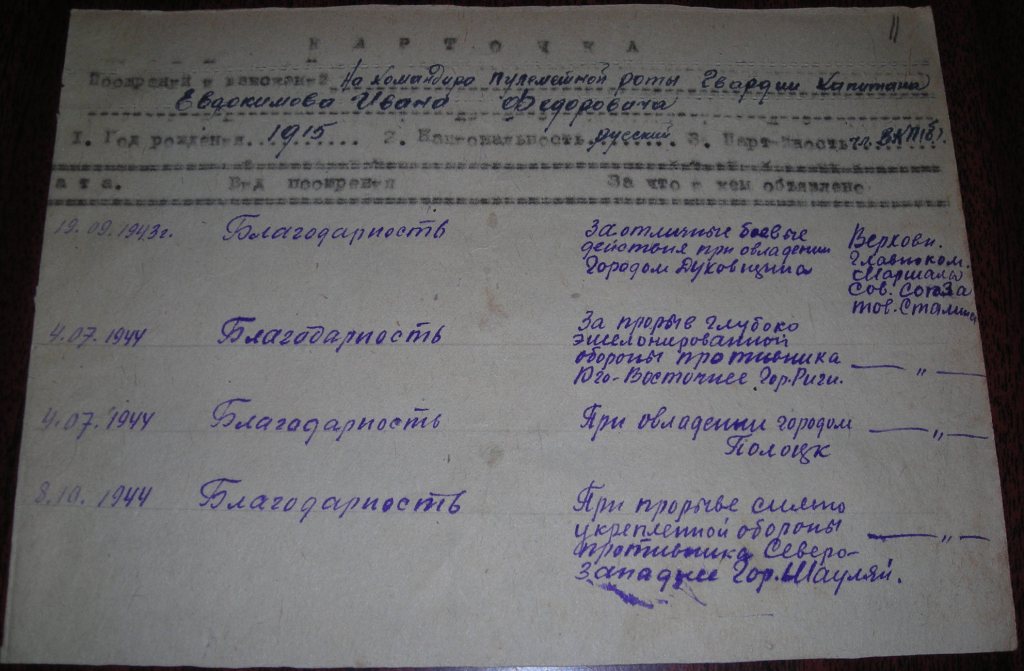 11
КАРТОЧКА
Поощрений и взысканий На командира пулеметной роты Гвардии Капитана
Евдокимова Ивана Федоровича
1. Год рождения...1915........ 2. Национальность.русский.... 3. Парт-йность чл ВКП(б).
ата. Вид поощрения За что и кем объявлено
19.09.1943г. Благодарность За отличные боевые
действия при овладении
Городом Духовщина
Верховн.
Главноком.
Маршалы
Сов. Союза
тов. Сталин
4.07.1944 Благодарность За прорыв глубоко
эшелонированной
обороны противника — „ —
Юго-Восточнее Гор. Риги.
4.07.1944 Благодарность При овладении городом — „ —
Полоцк
8.10.1944 Благодарность При прорыве сильно
укрепленной обороны — „ —
противника Северо-
Западнее Гор. Шауляй.